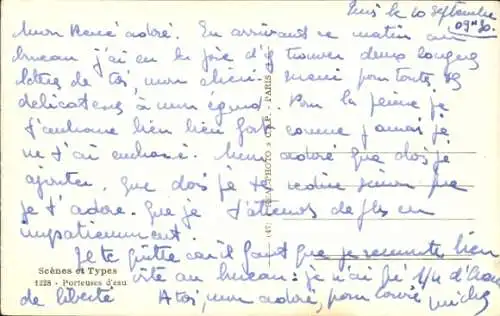 Tunis le 10 septembre
09H30.
Mon René adoré. En arrivant ce matin au
bureau j'ai eu la joie d'y trouver deux longues
lettres de toi, mon chéri. merci pour toutes ces
délicatesses à mon égard. Pour la peine je
t'embrasse bien bien fort comme jamais je
ne t'ai embrassé. Mon adoré que dois-je
ajouter, que dois je te redire sinon que
je t'adore. Que je t'attends de plus en
impatiemment.
Je te quitte car il faut que je remonte bien
vite au bureau: je n'ai que 1/4 d'heure
de liberté A toi, mon adoré, pour la vie
Scènes et Types
1228 - Porteuses d'eau
PHOTO & C.A.P. - PARIS